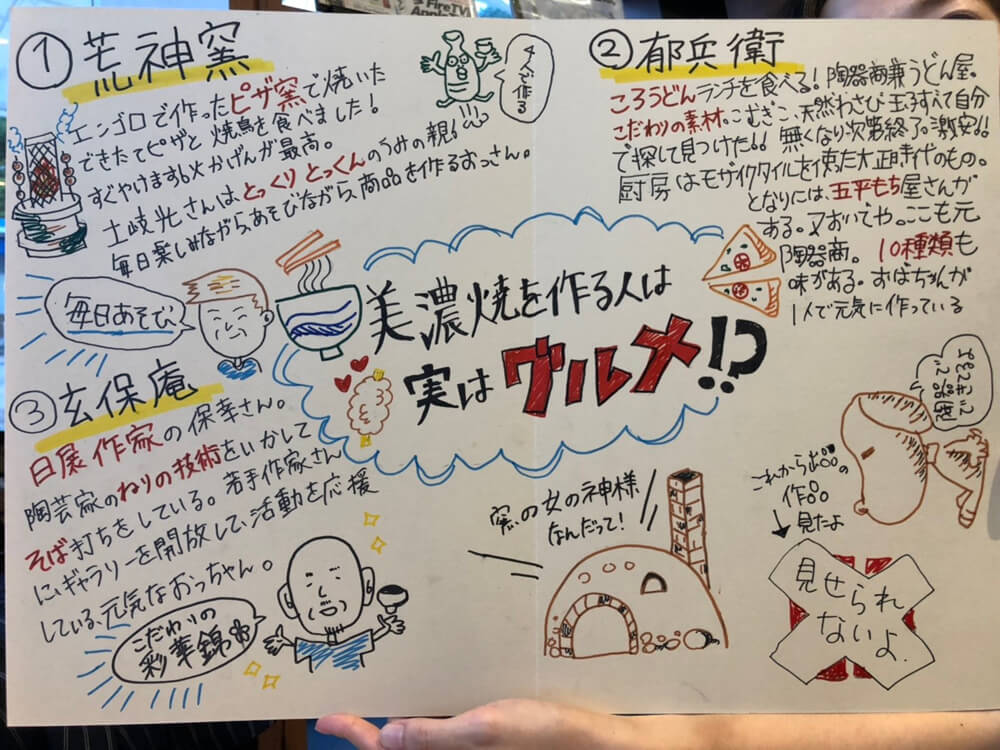 FireTV
①荒神窯
エンゴロで作ったピザ窯で焼いた
できたてピザと焼鳥を食べました!
すぐやけます。火かげんが最高。
土岐光さんはとっくりとっくんのうみの親!
毎日楽しみながら、あそびながら、商品を作るおっさん。
4人で作る
毎日あそび
②郁兵衛
ころうどんランチを食べる!陶器商兼うどん屋。
こだわりの素材。こむぎこ、天然わさび 玉子すべて自分
で探して見つけた!!無くなり次第終了。激安!!
厨房はモザイクタイルを使った大正時代のもの。
となりには、五平もち屋さんが
ある。又おいでや。ここも元
陶器商。10種類も
味がある。おばちゃんが
1人で元気に作っている
美濃焼を作る人は
実はグルメ!?
③玄保庵
日展作家の保幸さん。
陶芸家のねりの技術をいかして
そば打ちをしている。若手作家さん
にギャラリーを開放して、活動を応援
している、元気なおっちゃん。
こだわりの
彩華錦
窯の女の神様
なんだって!
これから出品の
作品
見たよ
見せられ
ないよ.